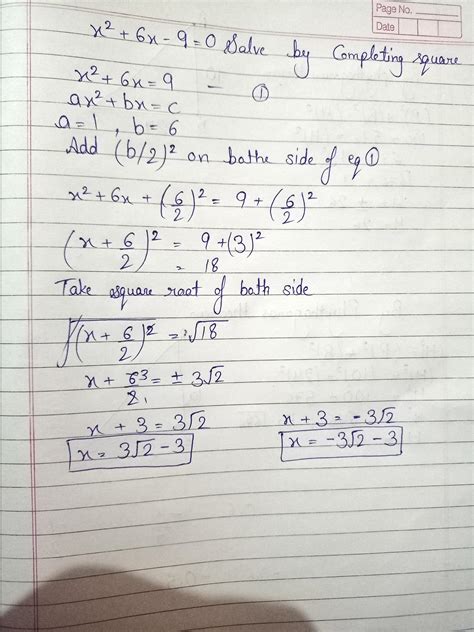 Page No.
Date
x² + 6x - 9 = 0 Salve by Completing square
x² + 6x = 9 — ①
ax² + bx = c
a = 1 , b = 6
Add (b/2)² on bathe side of eq ①
x² + 6x + (6/2)² = 9 + (6/2)²
(x + 6/2)² = 9 + (3)²
= 18
Take square root of bath side
√(x + 6/2)² = √18
x + 6/2 3 = ± 3√2
x + 3 = 3√2
x = 3√2 - 3
x + 3 = -3√2
x = -3√2 - 3